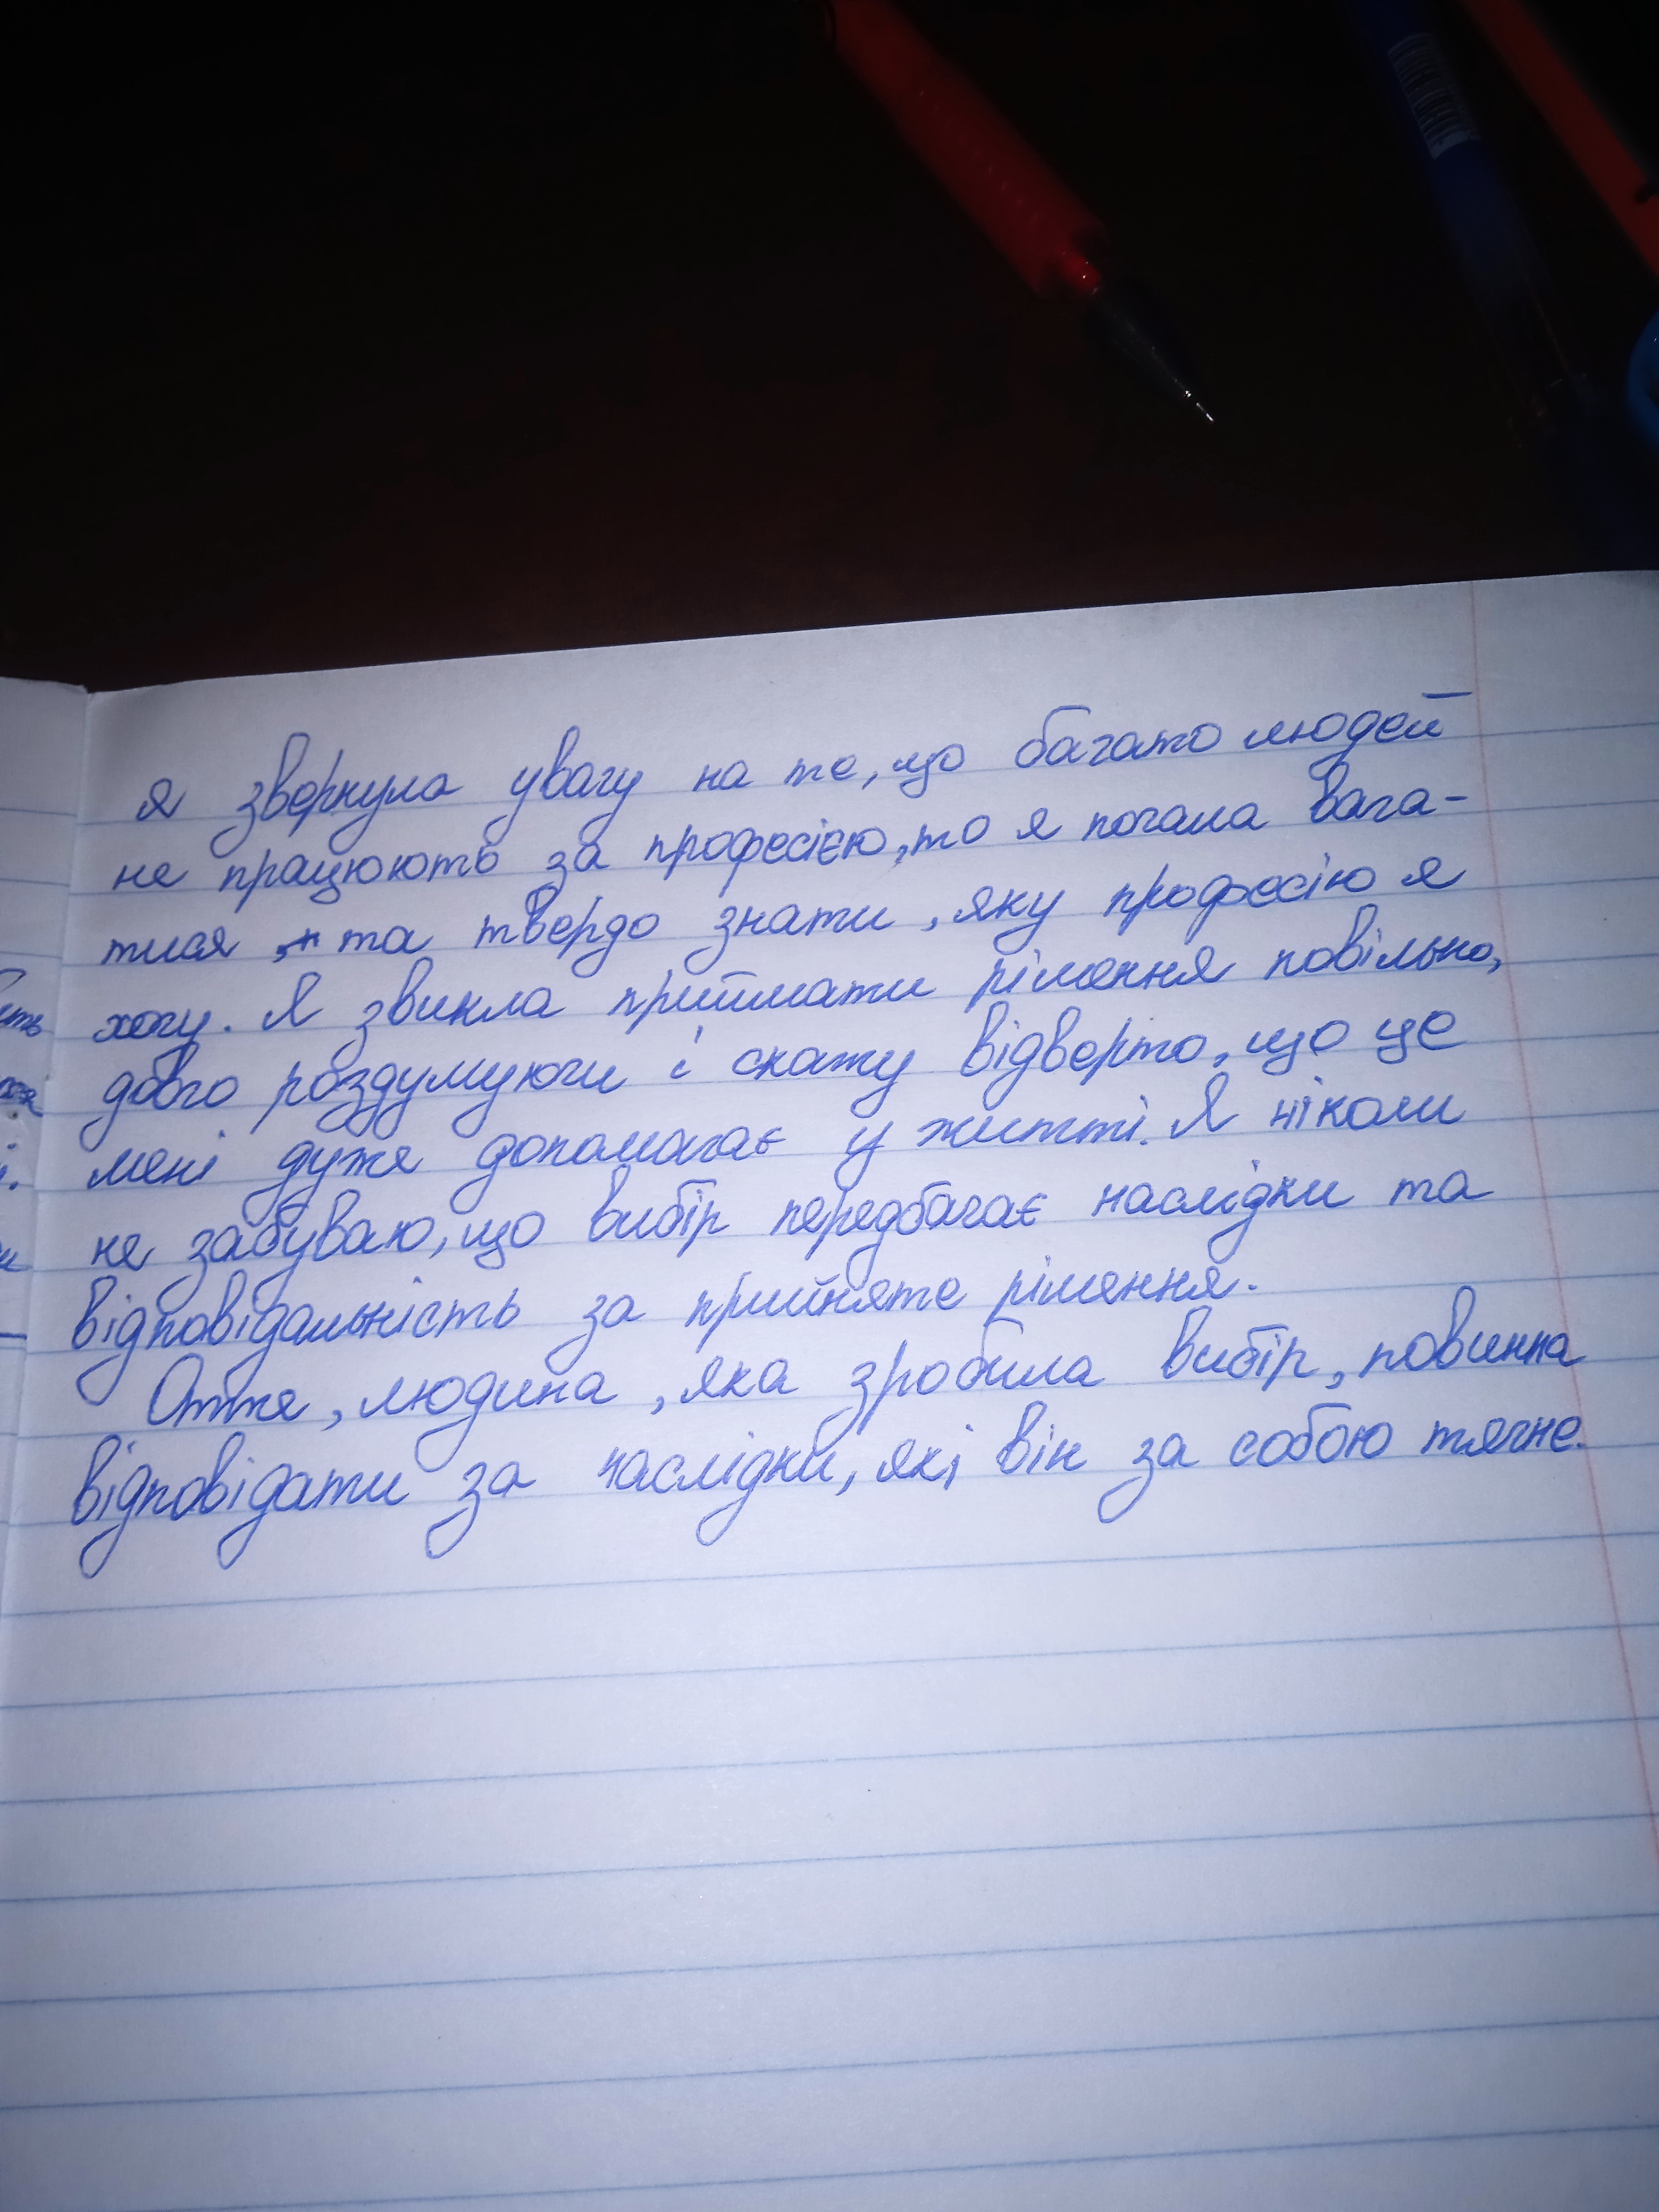 я звернула увагу на те, що багато людей
не працюють за професією, то я почала вага-
тися та твердо знати, яку професію я
хочу. Я звикла приймати рішення повільно,
довго роздумуючи і скажу відверто, що це
мені дуже допомагає у житті. Я ніколи
не забуваю, що вибір передбачає наслідки та
відповідальність за прийняте рішення.
Отже, людина, яка зробила вибір, повинна
відповідати за наслідки, які він за собою тягне.